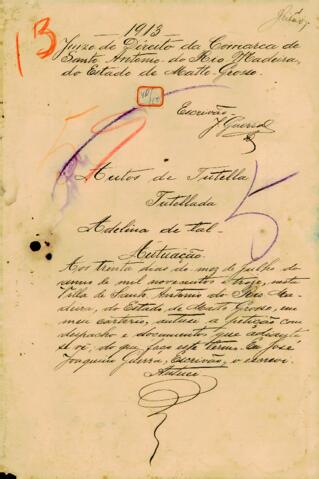 1913
13
Juizo de Direito da Comarca de
Santo Antonio do Rio Madeira,
do Estado de Matto-Grosso.
Escrivão
J. Guerra
59
5
Autos de Tutella
Tutellada
Adelina de tal-
Autuação.
Aos trinta dias do mez de Julho do
annus de mil novecentos e treze, nesta
Villa de Santo Antonio do Rio Ma-
deira, do Estado de Matto Grosso, em
meu cartorio, autuei a petição com
despacho e documentos que adiante
se vê, do que faço este termo. Eu José
Joaquim Guerra, Escrivão, o escrevi.
Autuei